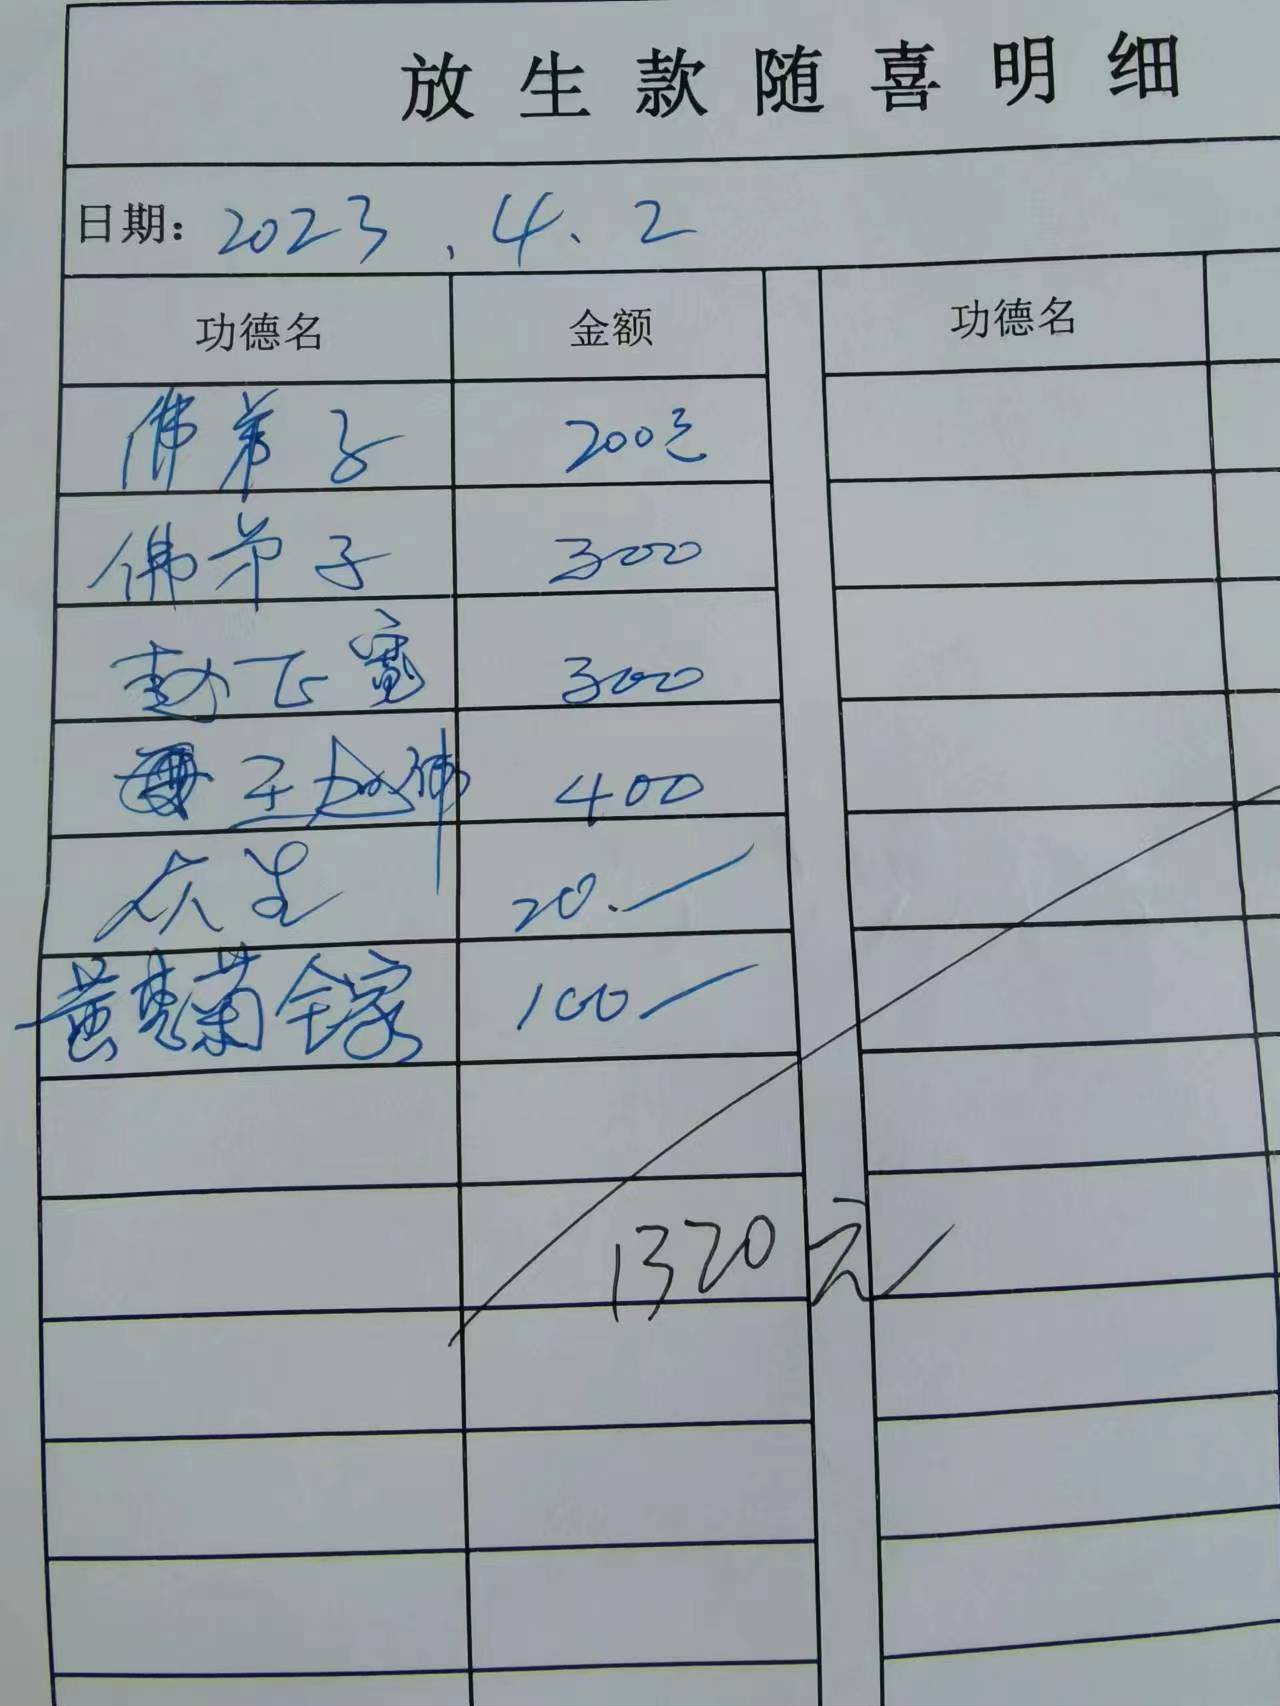 放生款随喜明细
日期: 2023.4.2
功德名 金额 功德名
佛弟子 200元
佛弟子 300
赵飞宽 300
400
众生 20.—
黄慧菊全家 100—
1320元